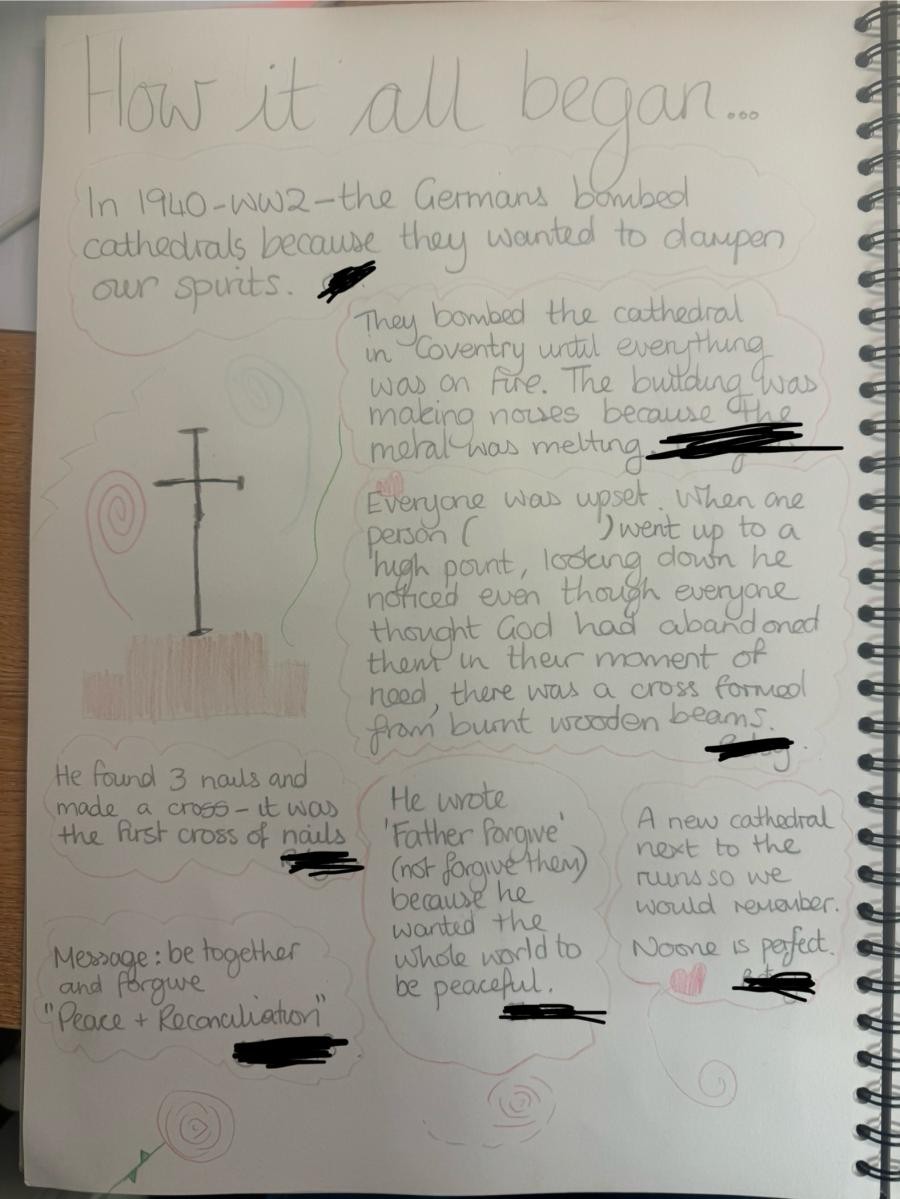 How it all began...
In 1940-WW2-the Germans bombed
cathedrals because they wanted to dampen
our spirits.
They bombed the cathedral
in Coventry until everything
was on fire. The building was
making noises because the
metal was melting.
Everyone was upset. When one
person (          )went up to a
high point, looking down he
noticed even though everyone
thought God had abandoned
them in their moment of
need, there was a cross formed
from burnt wooden beams.
He found 3 nails and
made a cross - it was
the first cross of nails
He wrote
'Father forgive'
(not forgive them)
because he
wanted the
whole world to
be peaceful.
A new cathedral
next to the
ruins so we
would remember.
Noone is perfect.
Message: be together
and forgive
"Peace + Reconciliation"